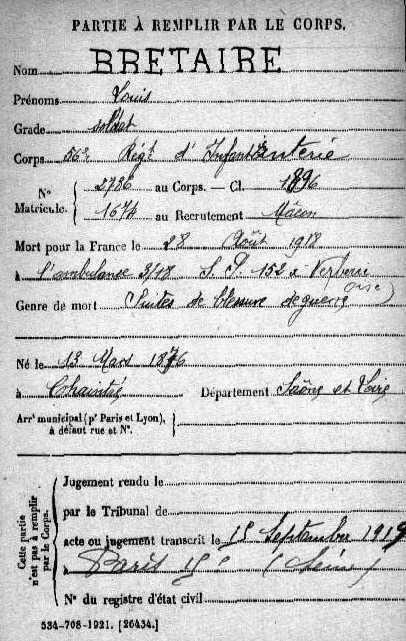 PARTIE À REMPLIR PAR LE CORPS.
Nom BRETAIRE
Prénoms Louis
Grade soldat
Corps 56e Régt d'Infanterie
N° Matricule. 2786 au Corps. — Cl. 1896
1674 au Recrutement Mâcon
Mort pour la France le 28 Août 1918
à l'ambulance 3/18 S. P. 152 à Verberie
Oise)
Genre de mort Suites de blessure de guerre
Né le 13 Mars 1876
à Département Saône et Loire
Arrt municipal (pr Paris et Lyon),
à défaut rue et N°.
Cette partie n'est pas à remplir par le Corps.
Jugement rendu le
par le Tribunal de
acte ou jugement transcrit le 15 Septembre 1919
à Paris 15e (Seine)
N° du registre d'état civil
534-708-1921. [26434.]